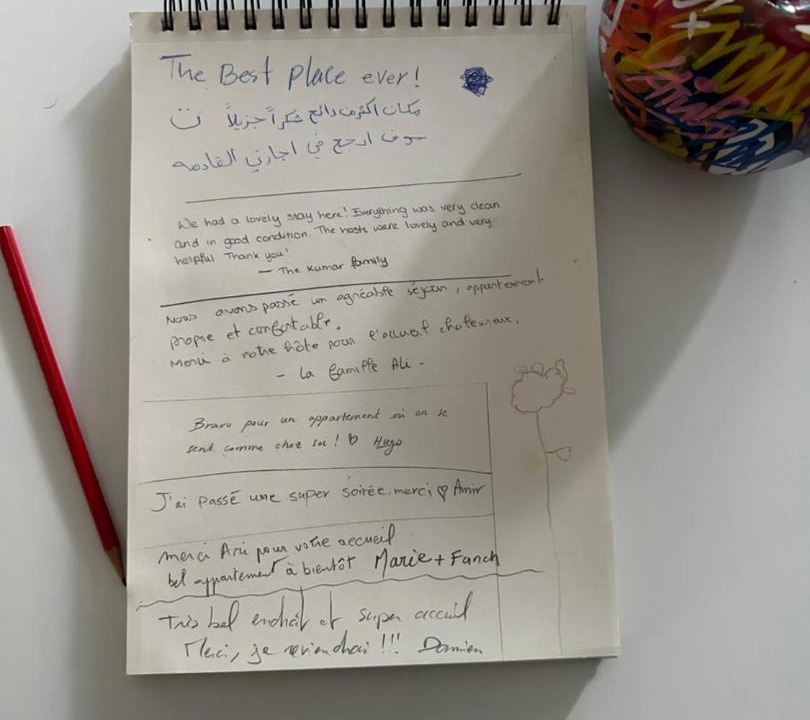 The Best place ever!
مكان اكثر من رائع شكراً جزيلاً ت
سوف ارجع في اجازتي القادمه
We had a lovely stay here! Everything was very clean
and in good condition. The hosts were lovely and very
helpful Thank you!
— The Kumar family
Nous avons passé un agréable séjour, appartement
propre et confortable.
Merci à notre hôte pour l'accueil chaleureux.
- La famille Ali -
Bravo pour un appartement où on se
sent comme chez soi ! ♡ Hugo
J'ai passé une super soirée. merci ♡ Amir
merci Ari pour votre accueil
bel appartement à bientôt Marie + Fanch
Très bel endroit et super accueil
Merci, je reviendrai !!! Damien